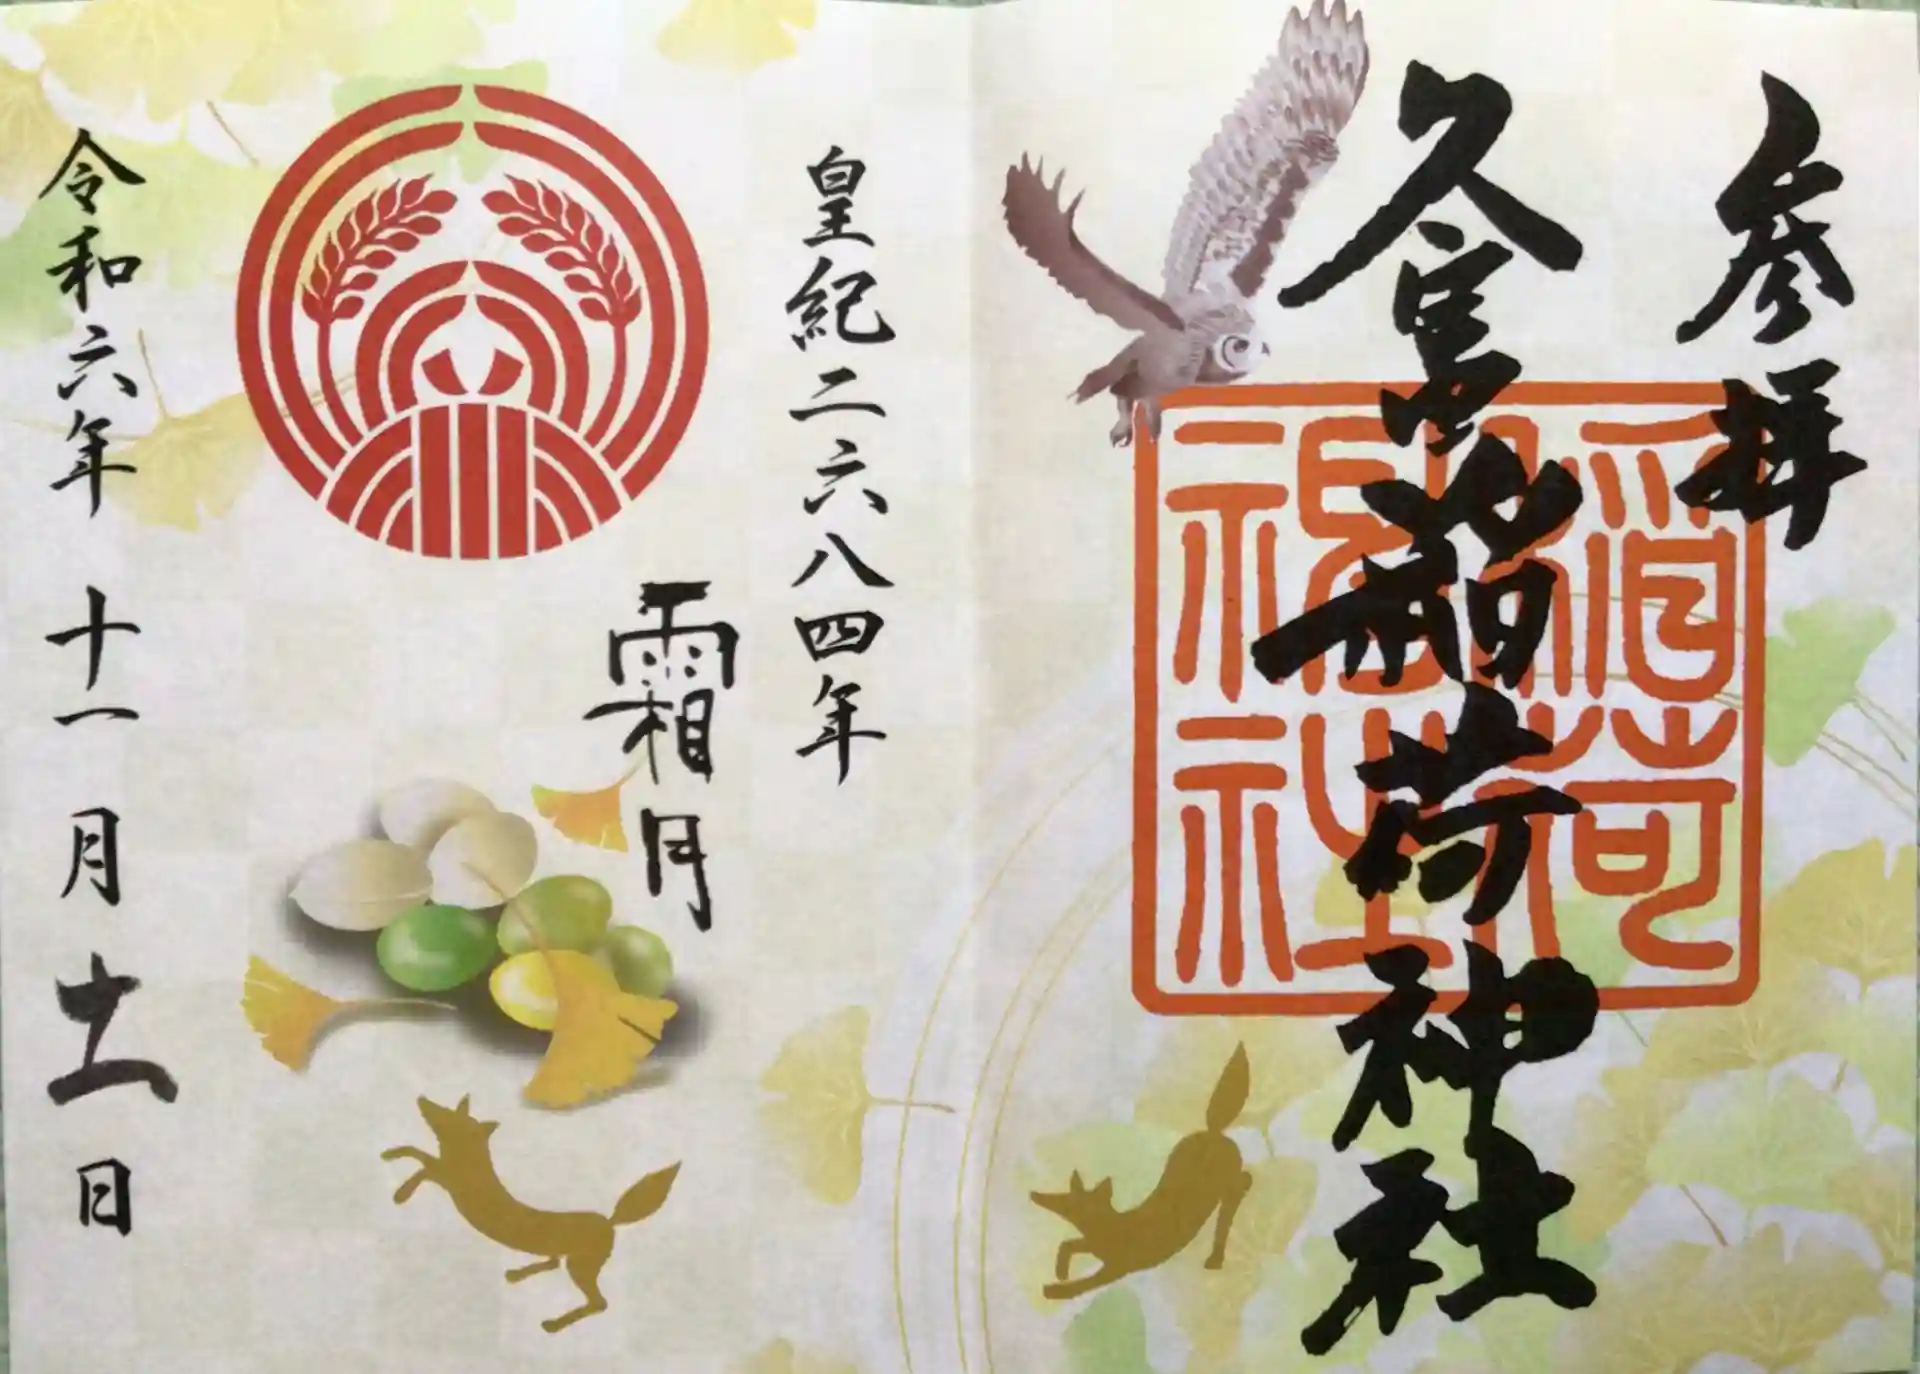 参拝
久富稲荷神社
稲荷
神社
皇紀二六八四年
霜月
令和六年十一月十一日